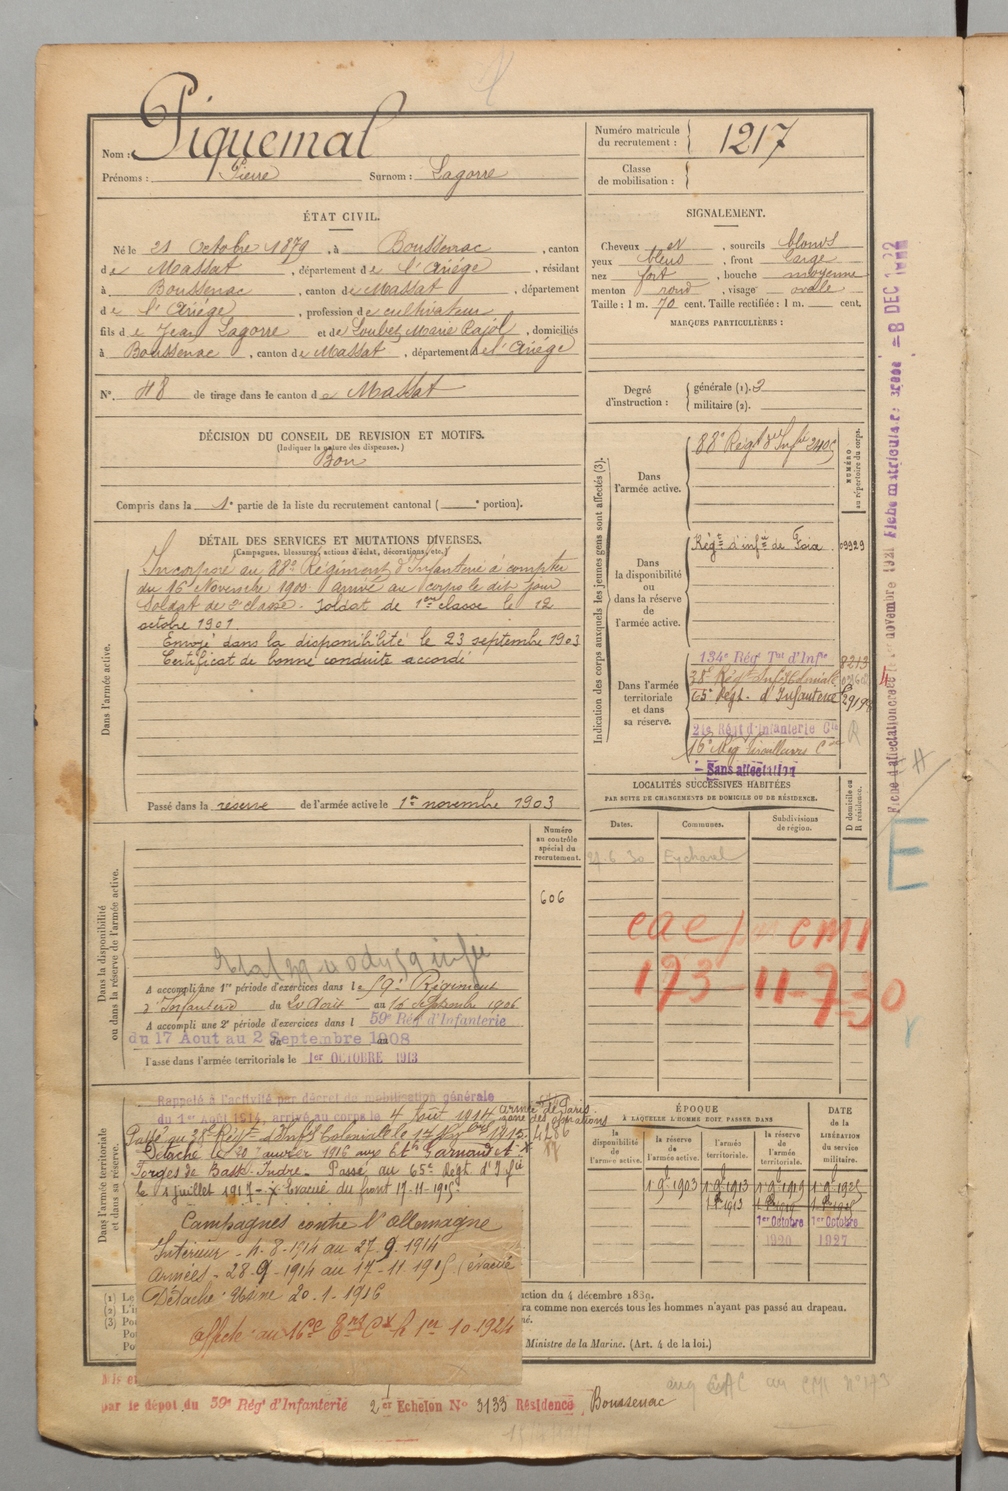 Nom : Piquemal
Prénoms : Pierre Surnom : Lagorre
Numéro matricule du recrutement : 1217
Classe de mobilisation :
ÉTAT CIVIL.
Né le 21 Octobre 1879, à Boussenac, canton
de Massat, département de l'Ariége, résidant
à Boussenac, canton de Massat, département
de l'Ariége, profession de cultivateur
fils de Jean Lagorre et de Loubet Marie Rajol, domiciliés
à Boussenac, canton de Massat, département de l'Ariége
N°. 48 de tirage dans le canton de Massat
SIGNALEMENT.
Cheveux et sourcils blonds
yeux bleus, front large
nez fort, bouche moyenne
menton rond, visage ovale
Taille : 1 m. 70 cent. Taille rectifiée : 1 m. cent.
MARQUES PARTICULIÈRES :
Degré d'instruction : générale (1). 3
militaire (2).
DÉCISION DU CONSEIL DE REVISION ET MOTIFS.
(Indiquer la nature des dispenses.)
Bon
Compris dans la 1e partie de la liste du recrutement cantonal ( e portion).
DÉTAIL DES SERVICES ET MUTATIONS DIVERSES.
(Campagnes, blessures, actions d'éclat, décorations, etc.)
Dans l'armée active.
Incorporé au 88e Régiment d'Infanterie à compter
du 16 Novembre 1900 arrivé au corps le dit jour
Soldat de 2e classe. Soldat de 1ère classe le 12
octobre 1901.
Envoyé dans la disponibilité le 23 septembre 1903
Certificat de bonne conduite accordé
Passé dans la réserve de l'armée active le 1er novembre 1903
Indication des corps auxquels les jeunes gens sont affectés (3).
NUMÉRO au répertoire du corps.
Dans l'armée active.
88e Régt d'Infie
Dans la disponibilité ou dans la réserve de l'armée active.
Régt d'infie de Foix. 09929
Dans l'armée territoriale et dans sa réserve.
134e Rég Tal d'Infie 8213
38e Régt Infie Coloniale
65e Régt. d'Infanterie
21e Régt d'Infanterie Cle
16e Rég Tirailleurs
Sans affectation
LOCALITÉS SUCCESSIVES HABITÉES
PAR SUITE DE CHANGEMENTS DE DOMICILE OU DE RÉSIDENCE.
Dates. Communes. Subdivisions de région. D domicile ou R résidence.
27-6-30 Eycheil
cae / cm1
173 - 11-7-30
E
Numéro au contrôle spécial du recrutement.
606
Dans la disponibilité ou dans la réserve de l'armée active.
A accompli une 1re période d'exercices dans le 59e Régiment
d'Infanterie du 20 Août au 16 Septembre 1906
A accompli une 2e période d'exercices dans l 59e Rég d'Infanterie
du 17 Aout au 2 Septembre 1908
Passé dans l'armée territoriale le 1er OCTOBRE 1913
Dans l'armée territoriale et dans sa réserve.
Rappelé à l'activité par décret de mobilisation générale
du 1er Août 1914, arrivé au corps le 4 Août 1914
armée de Paris zone des opérations
Passé au 38e Régt d'Infie Coloniale le 17 1915
4486
Détaché le 20 janvier 1916 aux Ets Garnaud
Forges de Basse-Indre. Passé au 65e Régt. d'Infie
le 1 juillet 1917 - x Evacué du front 17-11-1915.
Campagnes contre l'Allemagne
Intérieur - 4-8-1914 au 27-9-1914
armées - 28-9-1914 au 17-11-1915 (évacué
Détaché : Usine 20-1-1916
Affecté au 16e
1er 10-1924
ÉPOQUE
À LAQUELLE L'HOMME DOIT PASSER DANS
la disponibilité de l'armée active. la réserve de l'armée active. l'armée territoriale. la réserve de l'armée territoriale.
DATE DE LA LIBÉRATION du service militaire.
1 9bre 1903 1 9bre 1913 1 9bre 1919 1 9bre 1925
1er Octobre 1920 1er Octobre 1927
uction du 4 décembre 1889.
ra comme non exercés tous les hommes n'ayant pas passé au drapeau.
Ministre de la Marine. (Art. 4 de la loi.)
par le dépôt du 59e Rég d'Infanterie 2er Echelon N° 3133 Résidence Boussenac